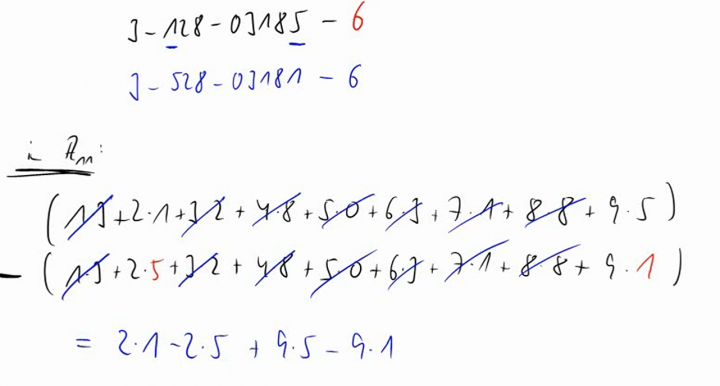 3-128-03185-6
3-528-03181-6
in ℤ₁₁:
(1·3+2·1+3·2+4·8+5·0+6·3+7·1+8·8+9·5)
-(1·3+2·5+3·2+4·8+5·0+6·3+7·1+8·8+9·1)
=2·1-2·5+9·5-9·1